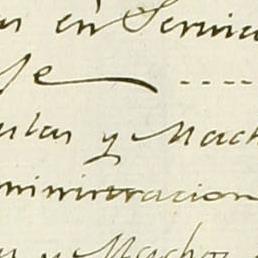 en Servici
fe ----
ulas y Mach
ministracion
y Machos